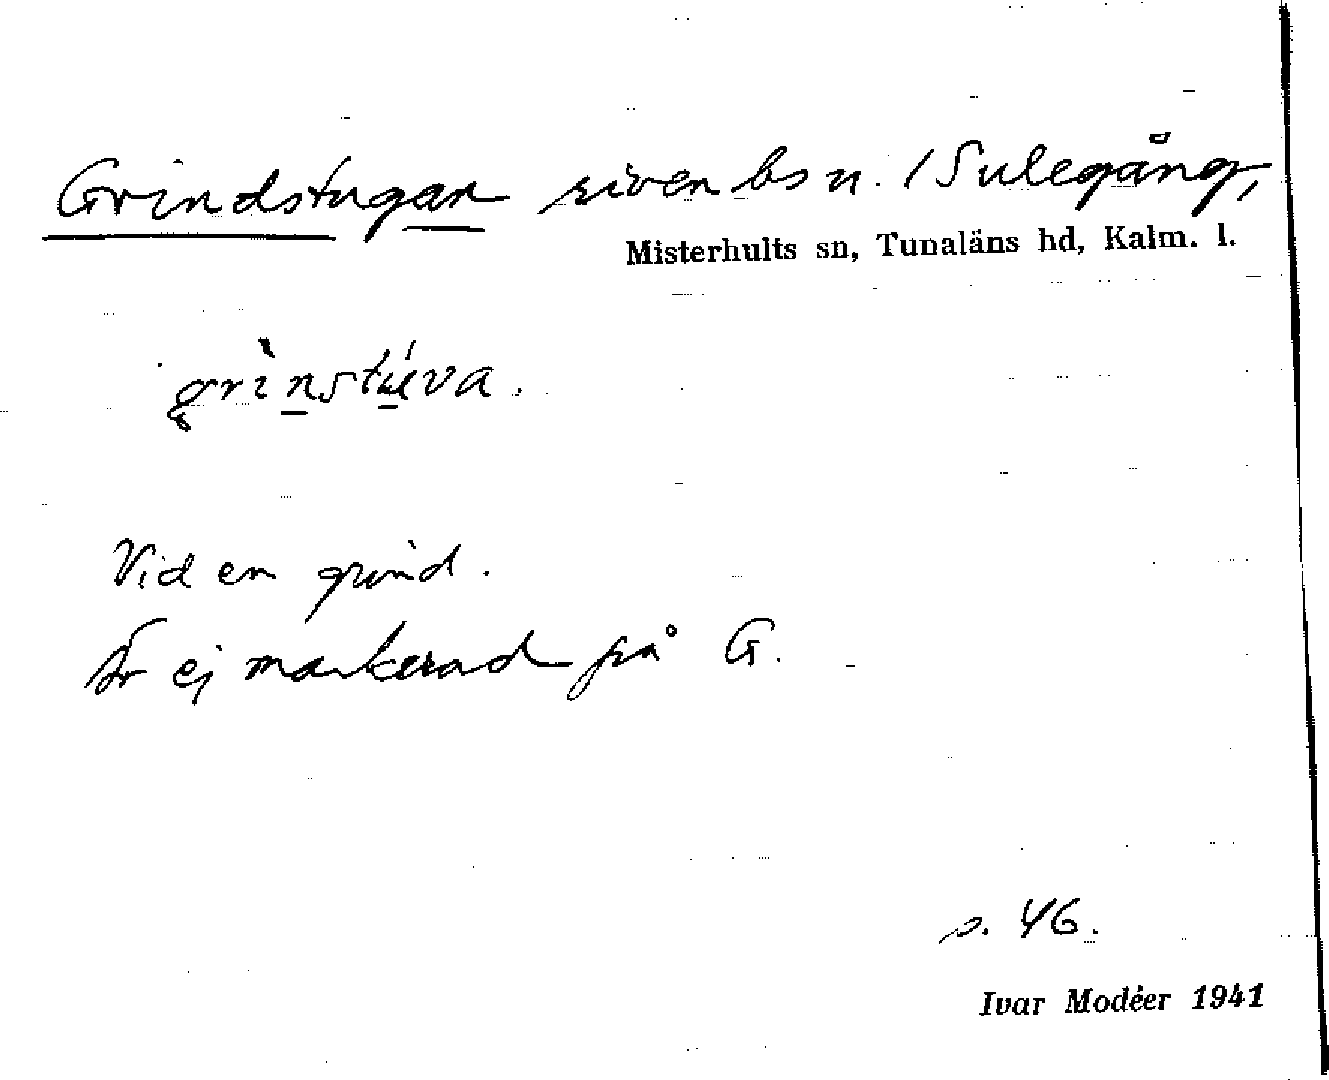 Grindstugan riven bs n. / Sulegång,
Misterhults sn, Tunaläns hd, Kalm. l.
grìnstúva.
Vid en grind.
Är ej markerad på G.
s. 46.
Ivar Modéer 1941